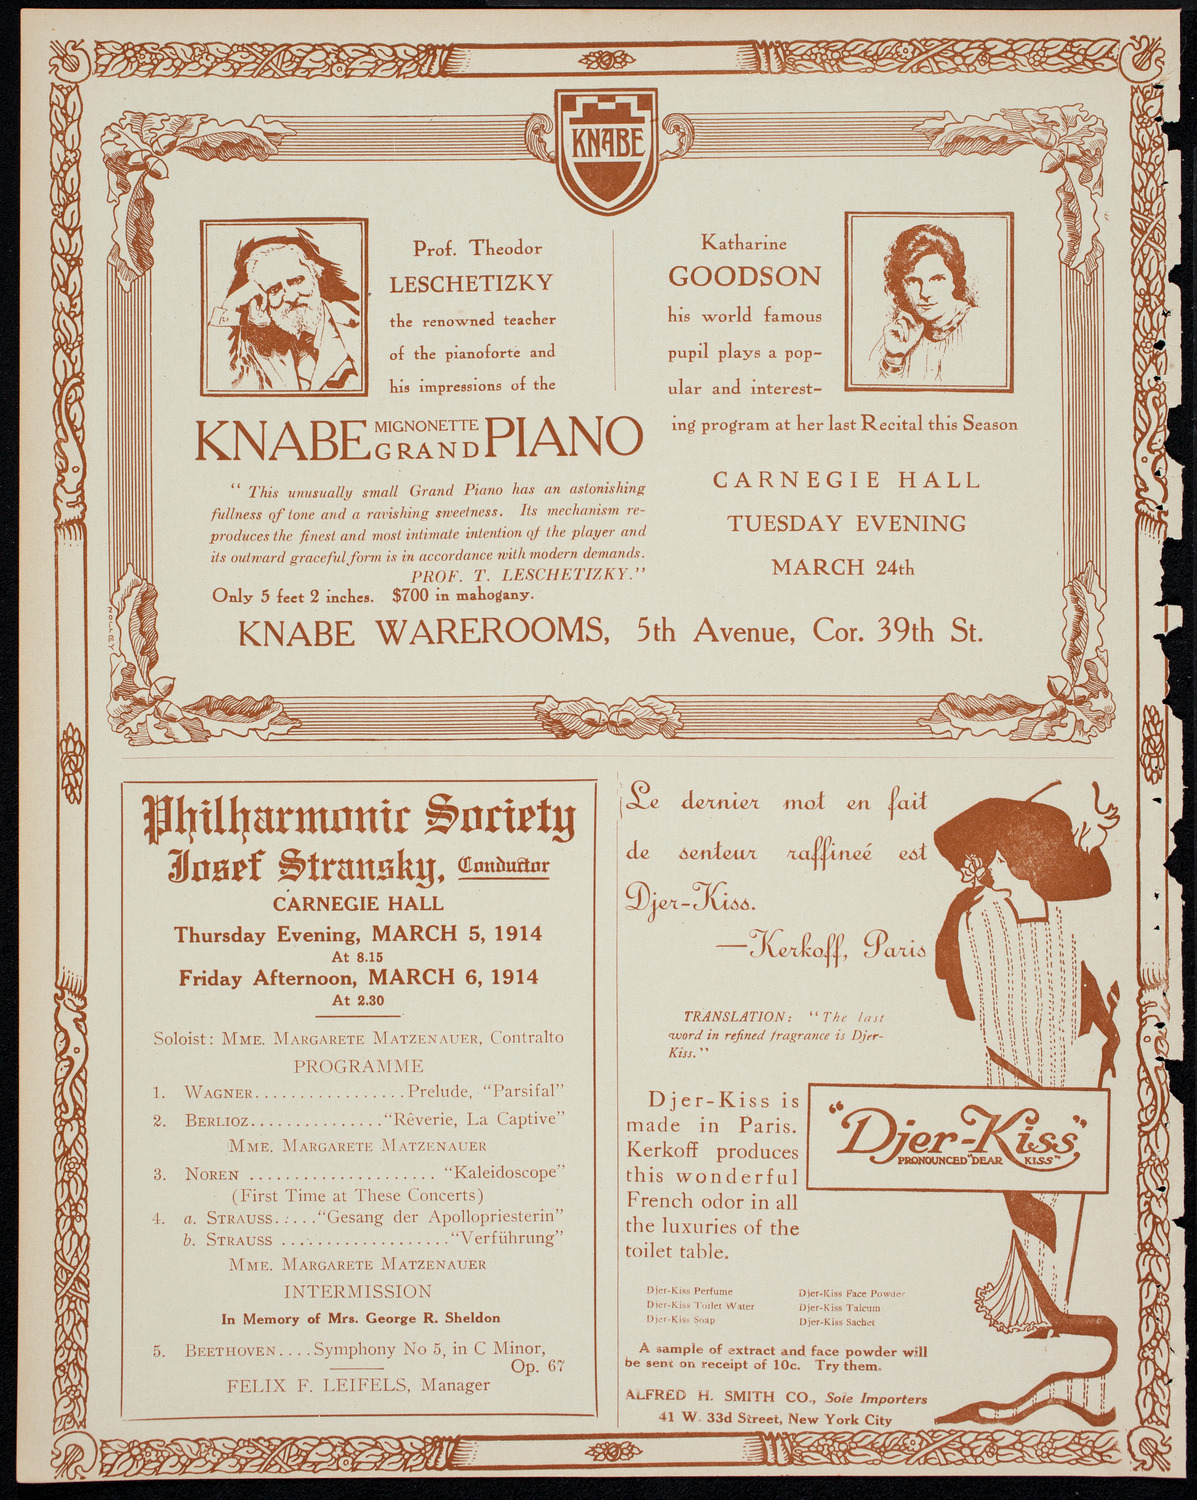 KNABE
Prof. Theodor
LESCHETIZKY
the renowned teacher
of the pianoforte and
his impressions of the
KNABE MIGNONETTE GRAND PIANO
“ This unusually small Grand Piano has an astonishing
fullness of tone and a ravishing sweetness. Its mechanism re-
produces the finest and most intimate intention of the player and
its outward graceful form is in accordance with modern demands.
PROF. T. LESCHETIZKY.”
Only 5 feet 2 inches. $700 in mahogany.
Katharine
GOODSON
his world famous
pupil plays a pop-
ular and interest-
ing program at her last Recital this Season
CARNEGIE HALL
TUESDAY EVENING
MARCH 24th
KNABE WAREROOMS, 5th Avenue, Cor. 39th St.
NOLLEY
Philharmonic Society
Josef Stransky, Conductor
CARNEGIE HALL
Thursday Evening, MARCH 5, 1914
At 8.15
Friday Afternoon, MARCH 6, 1914
At 2.30
Soloist: MME. MARGARETE MATZENAUER, Contralto
PROGRAMME
1. WAGNER.................Prelude, “Parsifal”
2. BERLIOZ...............“Rêverie, La Captive”
MME. MARGARETE MATZENAUER
3. NOREN .....................“Kaleidoscope”
(First Time at These Concerts)
4. a. STRAUSS......“Gesang der Apollopriesterin”
b. STRAUSS ...................“Verführung”
MME. MARGARETE MATZENAUER
INTERMISSION
In Memory of Mrs. George R. Sheldon
5. BEETHOVEN....Symphony No 5, in C Minor,
Op. 67
FELIX F. LEIFELS, Manager
Le dernier mot en fait
de senteur raffineé est
Djer-Kiss.
—Kerkoff, Paris
TRANSLATION: “The last
word in refined fragrance is Djer-
Kiss.”
Djer-Kiss is
made in Paris.
Kerkoff produces
this wonderful
French odor in all
the luxuries of the
toilet table.
“Djer-Kiss”
PRONOUNCED “DEAR KISS”
Djer-Kiss Perfume
Djer-Kiss Toilet Water
Djer-Kiss Soap
Djer-Kiss Face Powder
Djer-Kiss Talcum
Djer-Kiss Sachet
A sample of extract and face powder will
be sent on receipt of 10c. Try them.
ALFRED H. SMITH CO., Sole Importers
41 W. 33d Street, New York City